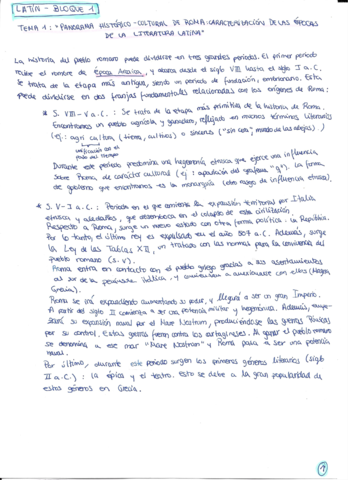 LATÍN - BLOQUE 1
TEMA 1: "PANORAMA HISTÓRICO-CULTURAL DE ROMA: CARACTERIZACIÓN DE LAS ÉPOCAS
DE LA LITERATURA LATINA"
La historia del pueblo romano puede dividirse en tres grandes períodos. El primer período
recibe el nombre de Época Arcaica, y abarca desde el siglo VIII hasta el siglo I a.C.
Se trata de la etapa más antigua, siendo un período de fundación, embrionario. Esta
puede dividirse en dos franjas fundamentales relacionadas con los orígenes de Roma:
* S. VIII - V a.C.: Se trata de la etapa más primitiva de la historia de Roma.
Encontramos un pueblo agrícola y ganadero, reflejado en muchos términos literarios
(ej.: agri cultura (tierra, cultivo) o sinceros ("sin cera", modo de las abejas))
con el
paso del tiempo
Durante este período predomina una hegemonía etrusca que ejerce una influencia
sobre Roma, de carácter cultural (ej: aparición del grafema "g"). La forma
de gobierno que encontramos es la monarquía (otro rasgo de influencia etrusca).
* S. V - I a.C.: Período en el que comienza la expansión territorial por Italia
etrusca y que desemboca en el colapso de esta civilización.
Respecto a Roma, surge un nuevo estado con otra forma política: la República.
Por lo tanto, el último rey es expulsado en el año 509 a.C. Además, surge
la Ley de las Tablas XII, un tratado con las normas para la convivencia del
pueblo romano (s. V).
Roma entra en contacto con el pueblo griego gracias a sus asentamientos
al sur de la península Itálica y con ellos (Magna
Grecia).
Roma se irá expandiendo aumentando su poder, y llegará a ser un gran Imperio.
A partir del siglo II comienza a ser una potencia militar y hegemónica. Además,
su expansión naval por el Mare Nostrum, produciéndose las guerras Púnicas
por su control. Estas guerras fueron contra los cartagineses. Al ganar el pueblo romano
se denomina a ese mar "Mare Nostrum" y Roma pasa a ser una potencia
naval.
Por último, durante este período surgen los primeros géneros literarios (siglo
II a.C.): la épica y el teatro. Esto se debe a la gran popularidad de
estos géneros en Grecia.
1